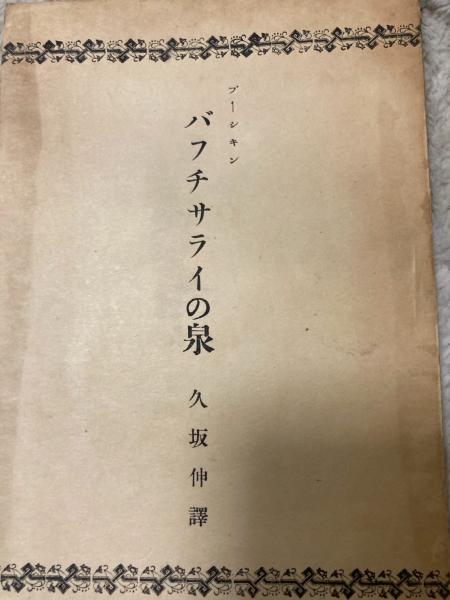 プーシキン
バフチサライの泉
久坂伸譯